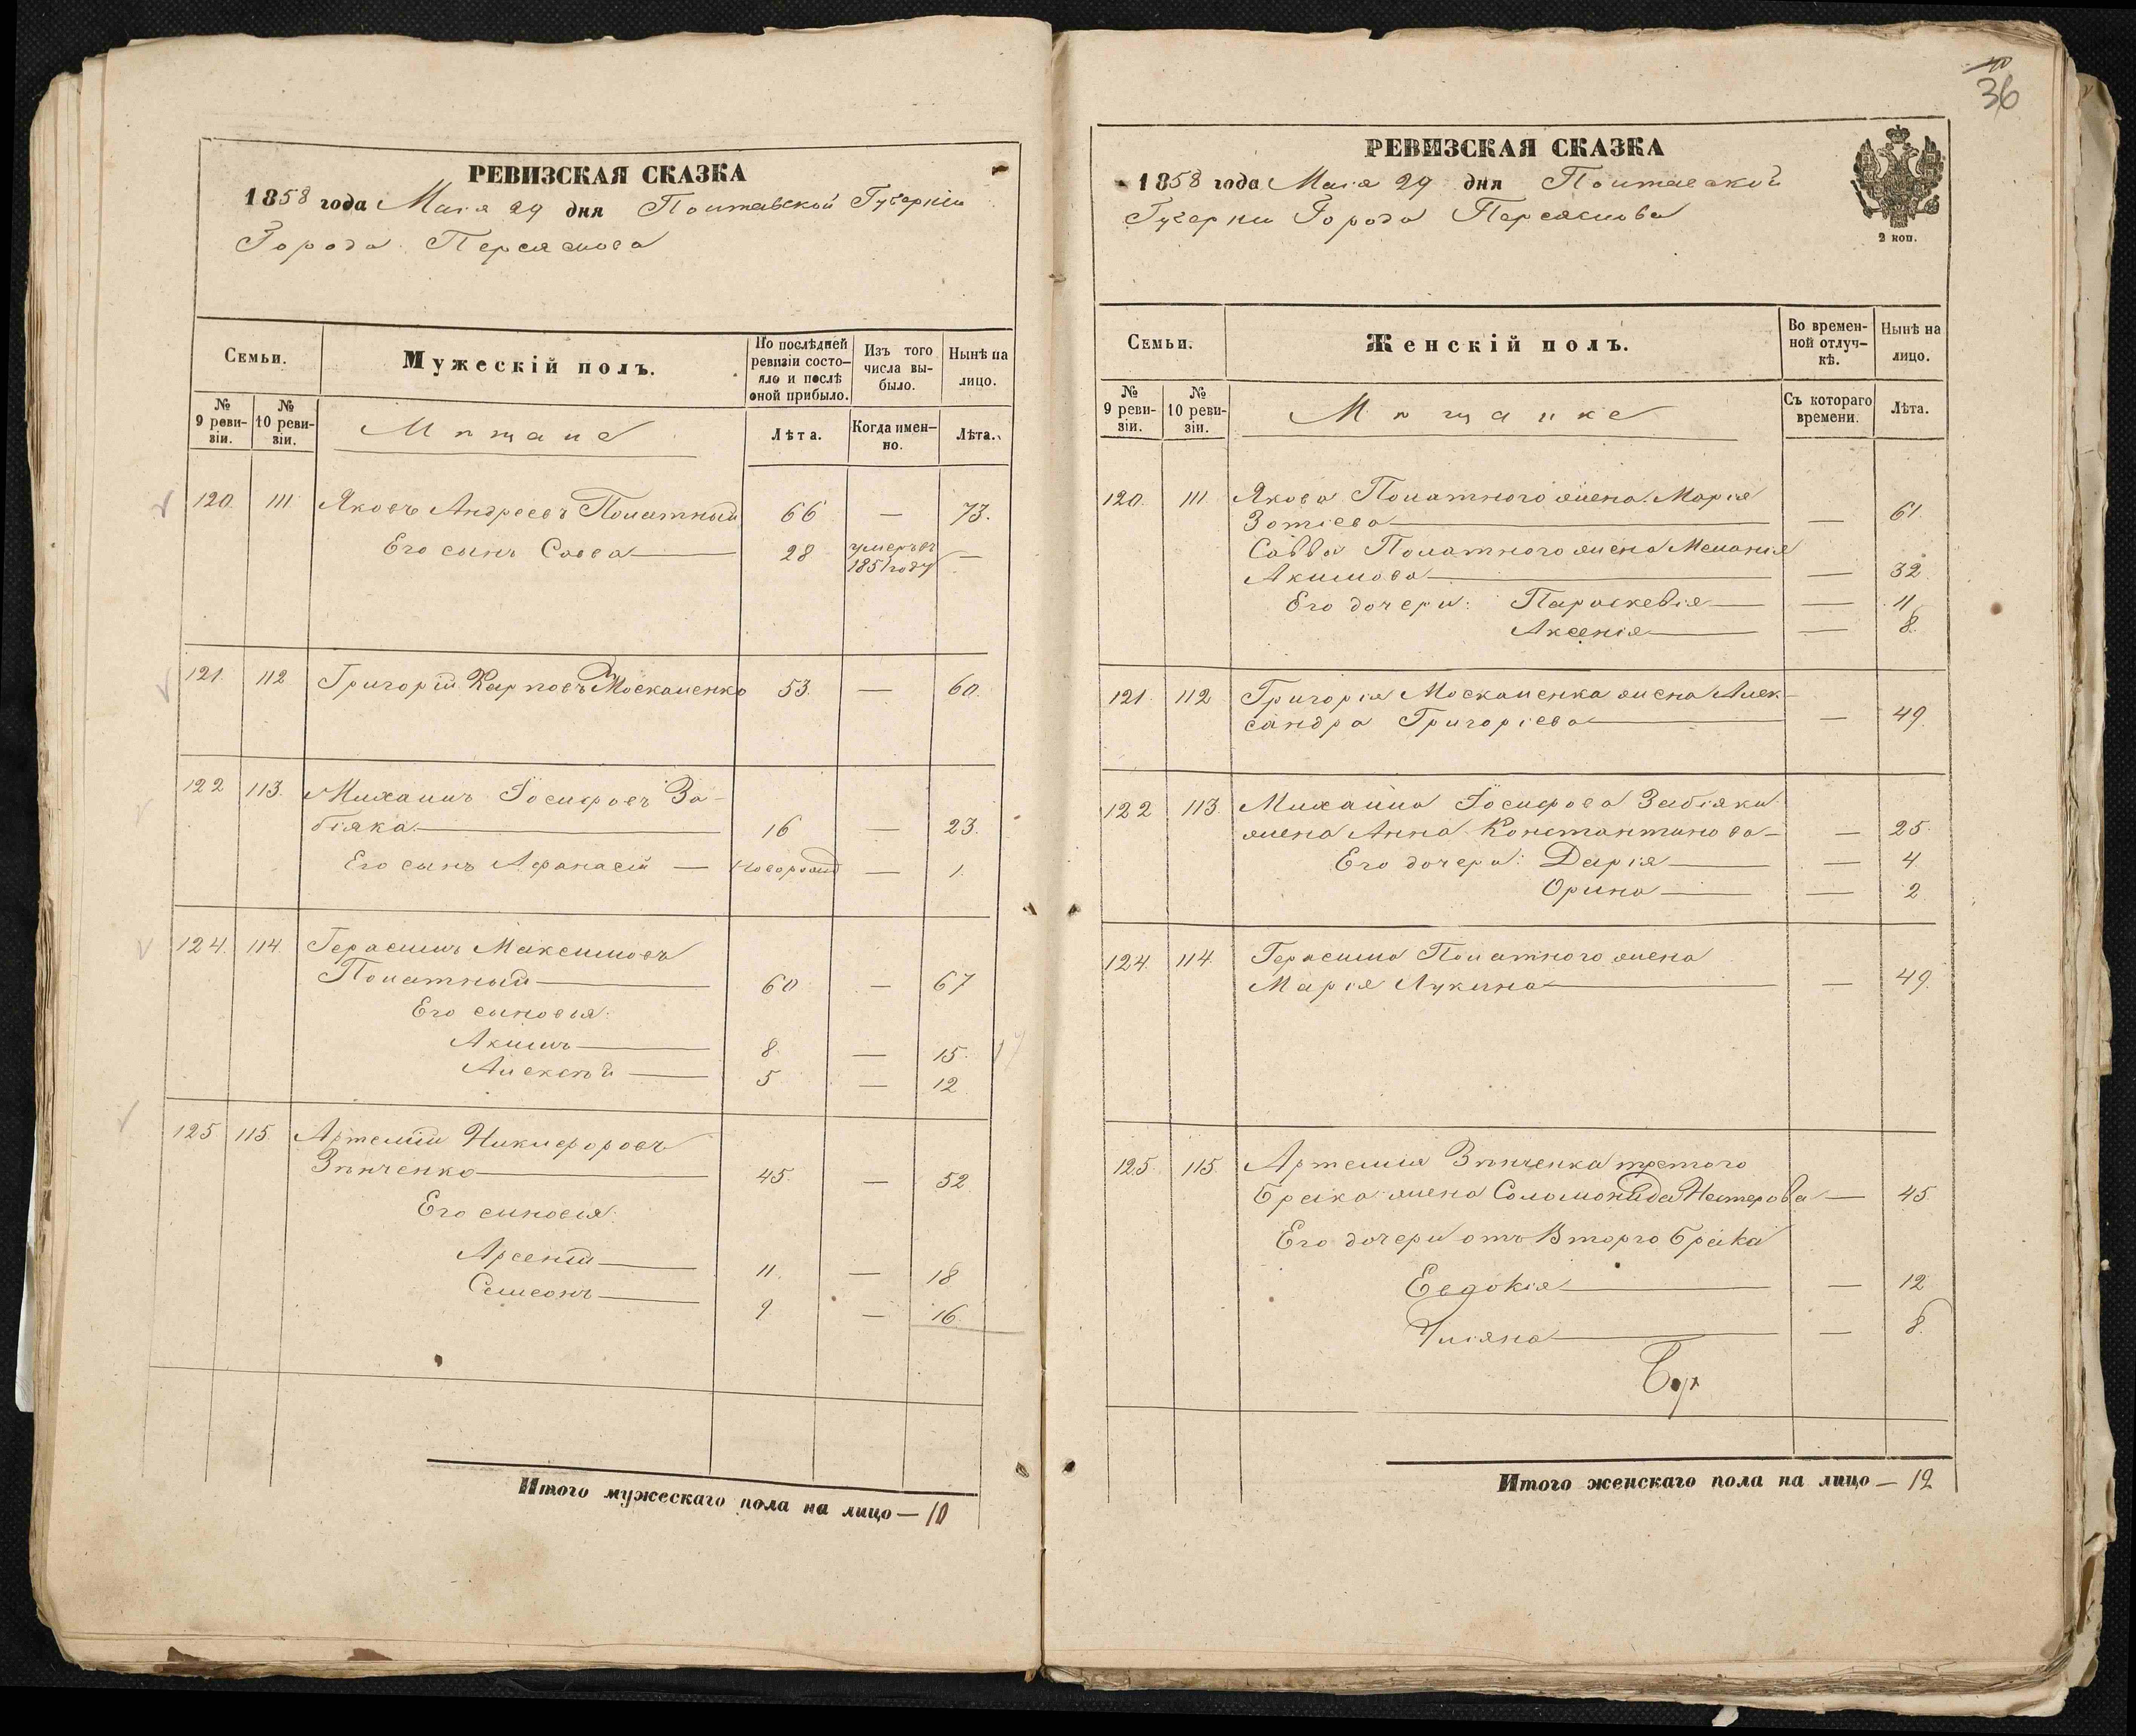 РЕВИЗСКАЯ СКАЗКА
1858 года Мая 29 дня Полтавской Губерніи
Города Переяслова
Семьи.
Мужескій полъ.
По послѣдней ревизіи состояло и послѣ оной прибыло.
Изъ того числа выбыло.
Нынѣ на лицо.
№ 9 ревизіи.
№ 10 ревизіи.
Мѣщане
Лѣта.
Когда именно.
Лѣта.
120. 111. Яковъ Андреевъ Полатный 66 — 73.
Его сынъ Савва 28 умеръ въ 1851 году —
121. 112 Григорій Карповъ Москаленко 53. — 60.
122 113. Михаилъ Іосифовъ За-
біяка 16 — 23.
Его сынъ Афанасій — новорожд — 1.
124. 114. Герасимъ Максимовъ
Полатный 60 — 67
Его сыновья:
Акимъ 8. — 15.
Алексѣй 5 — 12
125 115. Артемій Никифоровъ
Зѣнченко 45. — 52
Его сыновья:
Арсеній 11. — 18
Симеонъ 9 — 16.
Итого мужескаго пола на лицо — 10
36
РЕВИЗСКАЯ СКАЗКА
1858 года Мая 29 дня Полтавской
Губерни Города Переяслова
2 коп.
Семьи.
Женскій полъ.
Во временной отлучкѣ.
Нынѣ на лицо.
№ 9 ревизіи.
№ 10 ревизіи.
Мѣщанке
Съ котораго времени.
Лѣта.
120. 111. Якова Полатного жена Марія
Зотіева — 61.
Савва Полатного жена Меланія
Акимова — 32.
Его дочери: Параскевія — 11
Аксенія — 8.
121. 112 Григорія Москаленка жена Алек-
сандра Григоріева — 49.
122 113. Михаила Іосифова Забіяки
жена Анна Константинова — 25.
Его дочери: Дарія — 4
Орина — 2
124. 114. Герасима Полатного жена
Марія Лукина — 49.
125. 115. Артемия Зѣнченка третого
брака жена Соломонида Нестерова — 45.
Его дочери отъ Вторго брака
Евдокія — 12
Уліяна — 8.
Итого женскаго пола на лицо — 12